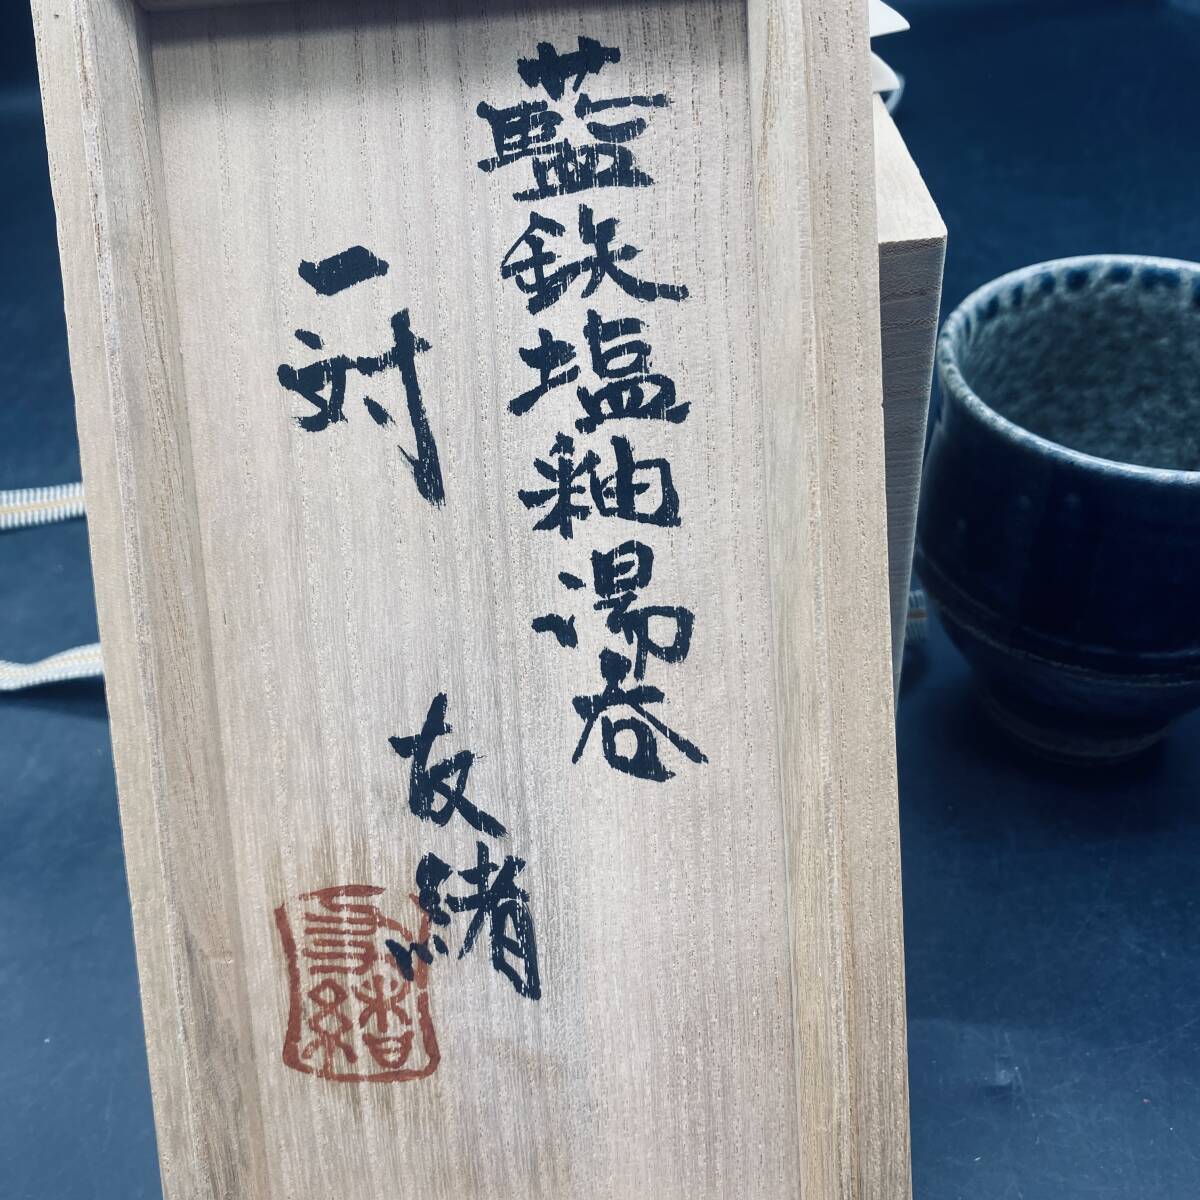 藍鉄塩釉湯呑
一対
友緒
友緒